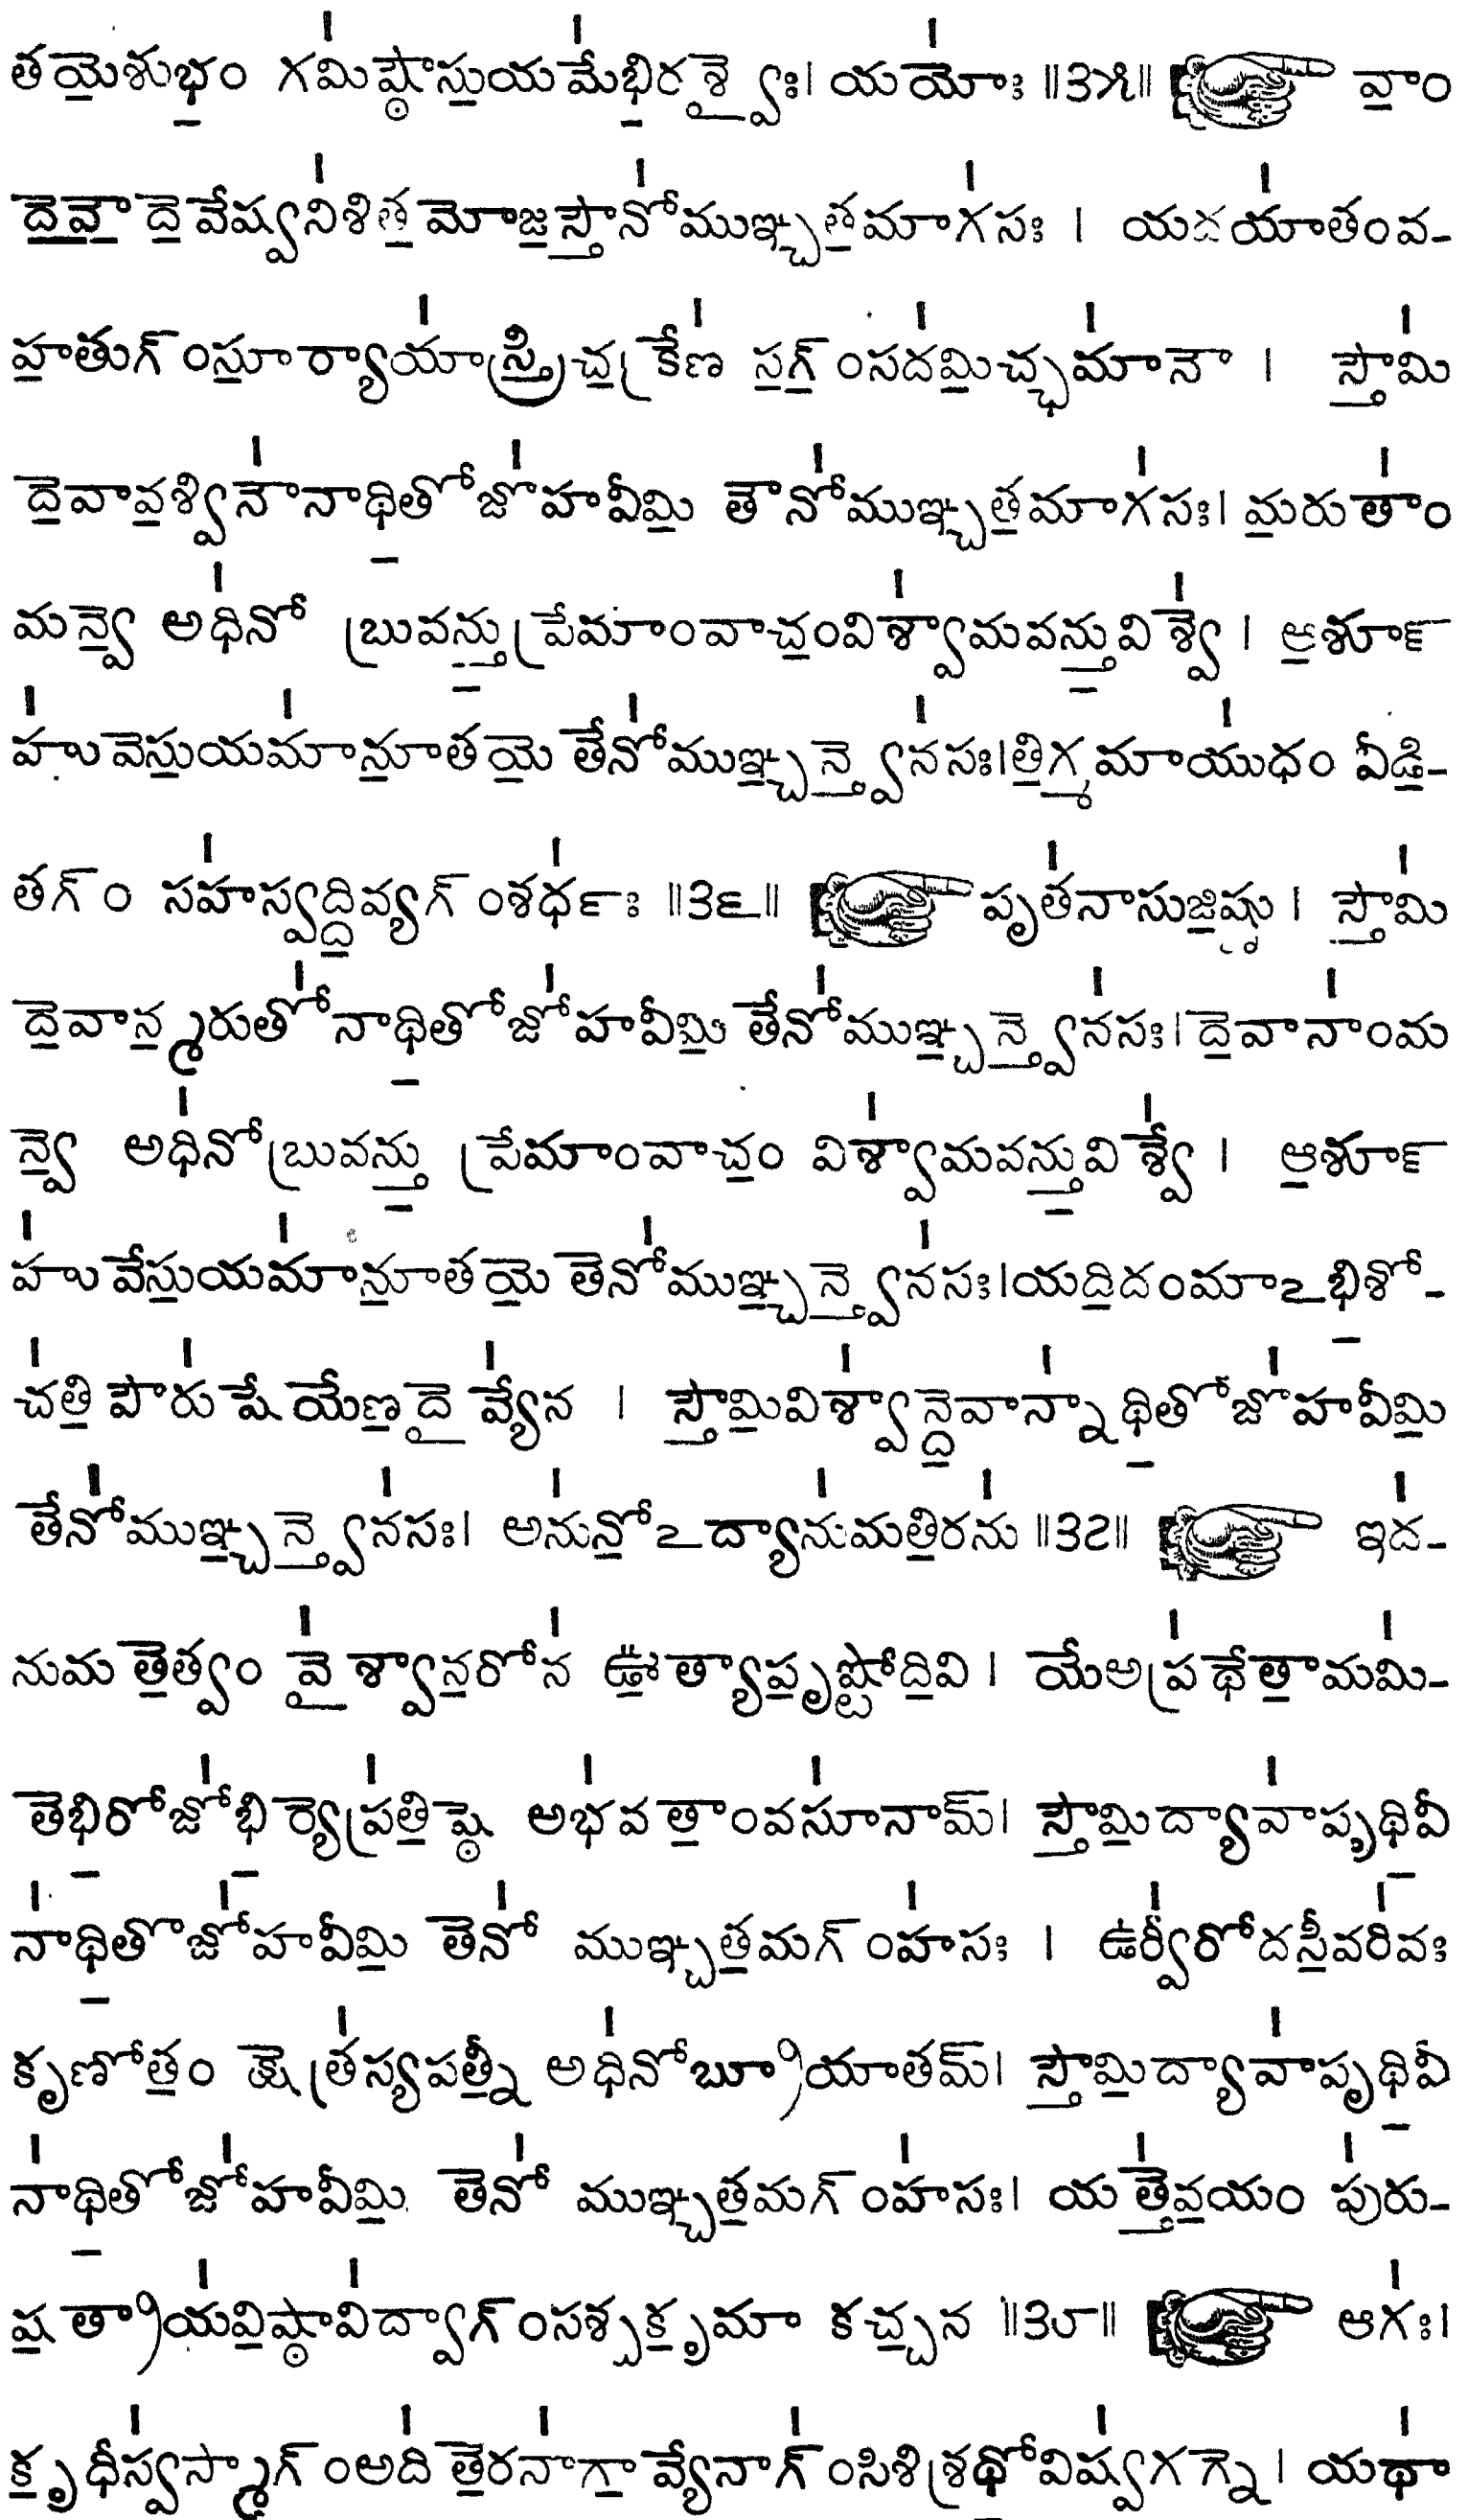 తయై॒శుభం॒ గమి॑ష్ఠౌ॒స్తు॒యమే॑భి॒రశ్వై॒ః। యయో॑ః ॥౩౫॥ వాం॒
దె॒వౌ॒ దె॒వేష్వని॑శిత॒మోజ॒స్తౌనో॑ముఞ్చత॒మాగ॑సః । యదయా॑తంవ-
హ॒తుగ్ంసూ॒ర్యాయా॑స్త్రిచ॒క్రేణ॑ స॒గ్॒ంసద॑మి॒చ్ఛమా॑నౌ । స్తౌ॒మి॑
దె॒వావ॒శ్వినౌ॑నాథి॒తోజో॑హవీమి॒ తౌనో॑ముఞ్చత॒మాగ॑సః। మ॒రుతాం॑
మన్వె॒ అధి॑నో బ్రువన్తు॒ప్రేమాంవాచం॒విశ్వా॑మవన్తు॒విశ్వే॑ । ఆ॒శూన్
హు॑వెస్తు॒యమా॑నూ॒తయై॒ తేనో॑ముఞ్చ॒న్త్వే॒న॑సః।తి॒గ్మమాయు॑ధం వీడి॒-
తగ్ం సహ॑స్వద్ది॒వ్యగ్ంశధ౯॑ః ॥౩౬॥ పృత॑నాసుజి॒ష్ణు । స్తౌ॒మి॑
దె॒వాన్మ॒రుతో॑నాథి॒తోజో॑హవీమి॒ తేనో॑ముఞ్చ॒న్త్వే॒న॑సః।దె॒వానాం॑మ
న్వె॒ అధి॑నోబ్రువన్తు॒ ప్రేమాంవాచం॒ విశ్వా॑మవన్తు॒విశ్వే॑ । ఆ॒శూన్
హు॑వేస్తు॒యమా॑నూ॒తయై॒ తెనో॑ముఞ్చ॒న్త్వే॒న॑సః।యది॒దంమాఽభి॒శో-
చ॑తి॒ పౌరు॑షేయేణ॒దై॒వ్యే॑న । స్తౌ॒మి॒విశ్వా॑న్దె॒వాన్నా॑థి॒తోజో॑హవీమి॒
తేనో॑ముఞ్చ॒న్త్వే॒న॑సః। అను॑నో॒ఽద్యాను॑మతి॒రను॑ ॥౩౭॥ ఇద॑-
నుమతె॒త్వం వై॒॑శ్వాన॒రోన॑ ఊ॒త్యాపృ॒ష్టోది॒వి । యేఅప్ర॑థేతా॒మమి॑-
తెభి॒రోజో॑భి॒ర్యెప్ర॑తి॒ష్ఠె అభ॑వతాం॒వసూ॑నామ్। స్తౌ॒మి॒ద్యావా॑పృథి॒వీ
నా॑థి॒తొజో॑హవీమి॒ తెనో॑ ముఞ్చత॒మగ్ంహ॑సః । ఉర్వీ॑రోదసీ॒వరి॑వః
కృణోతం॒ క్షెత్ర॑స్యపత్నీ॒ అధి॑నోబ్రూయాతమ్। స్తౌ॒మి॒ద్యావా॑పృథి॒వీ
నా॑థి॒తోజో॑హవీమి॒ తెనో॑ ముఞ్చత॒మగ్ంహ॑సః। యత్తె॑వ॒యం పు॑రు-
ష॒త్రాయ॑వి॒ష్ఠావి॑ద్వాగ్ంసశ్చకృ॒మా కచ్చ॒న ॥౩౮॥ ఆగ॑ః।
కృ॒ధీస్వ॑స్మాగ్ంఅది॑తె॒రనా॑గా॒వ్యేనా॑గ్ంసిశిశ్రథో॒విష్వ॑గగ్నె । యథా॑